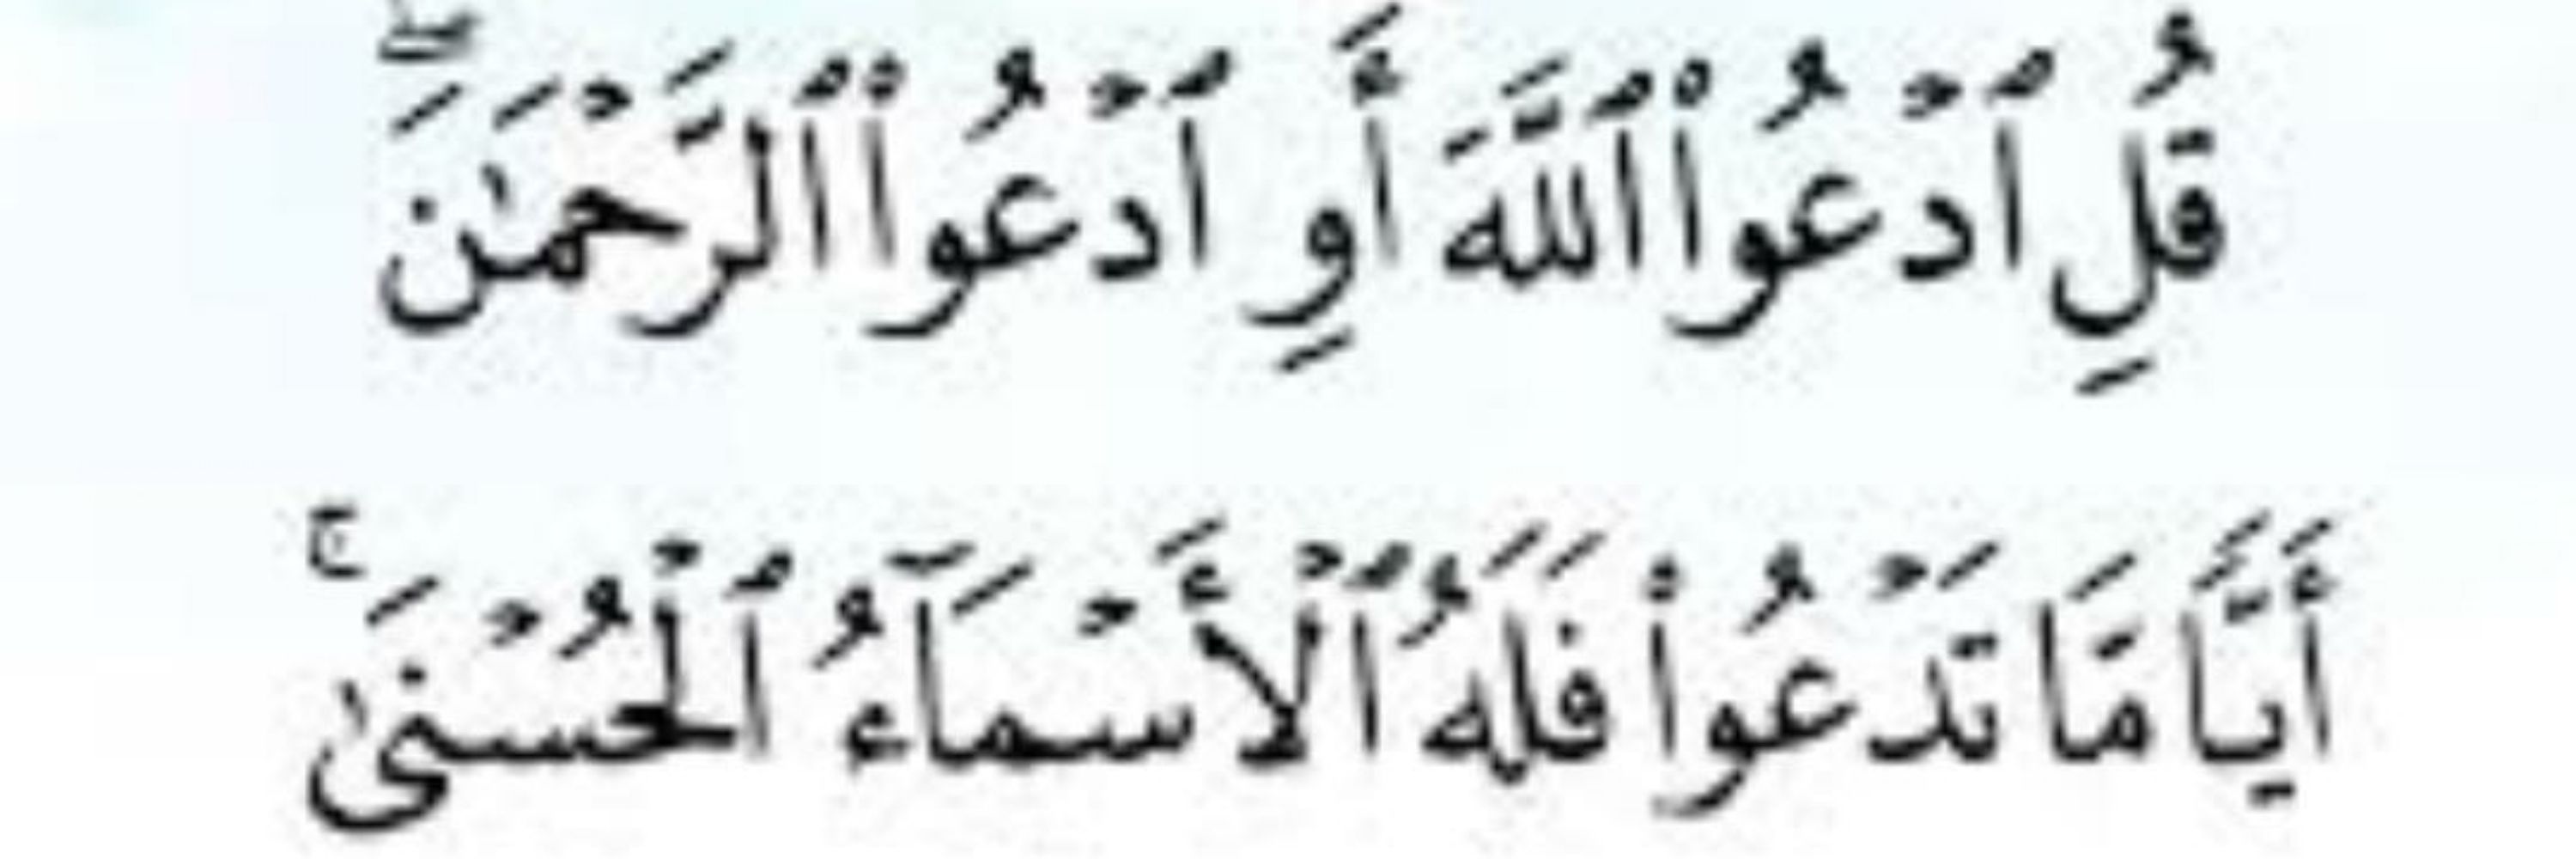 قُلِ ٱدْعُوا۟ ٱللَّهَ أَوِ ٱدْعُوا۟ ٱلرَّحْمَـٰنَ ۖ
أَيًّا مَّا تَدْعُوا۟ فَلَهُ ٱلْأَسْمَآءُ ٱلْحُسْنَىٰ ۚ